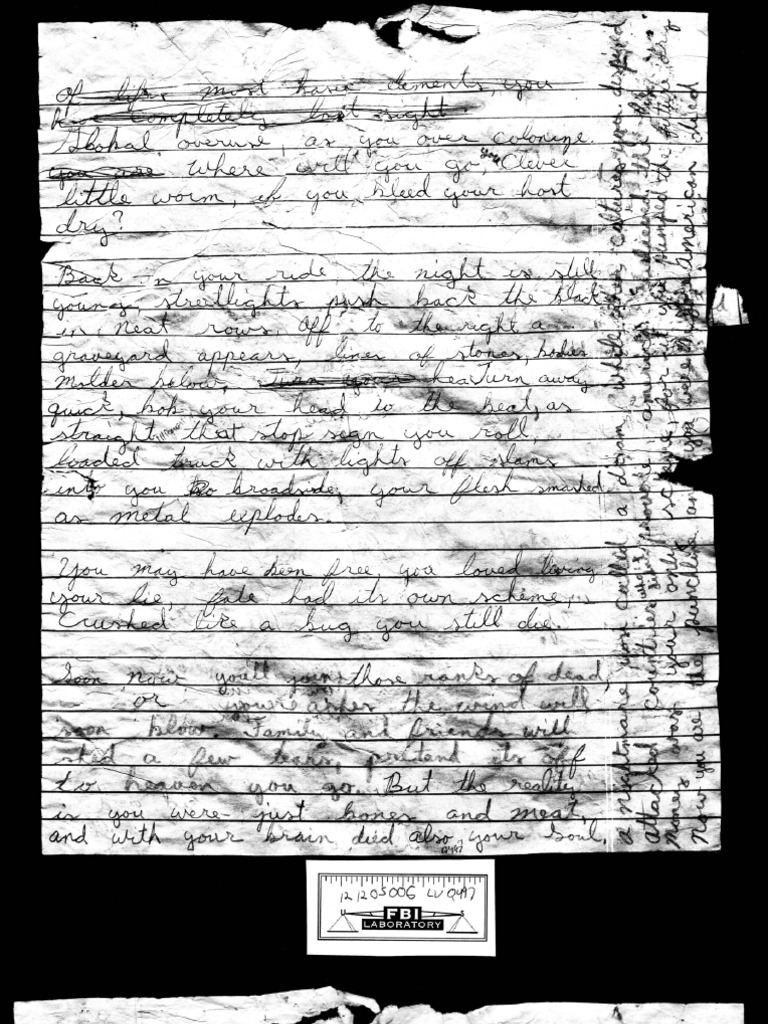 Of life's most have elements, you
have completely lost sight
Global overuse, as you over colonize.
you are Where will you go, you Clever
little worm, if you bleed your host
dry?
Back in your ride, the night is still
young, streetlights push back the black
in neat rows. Off to the right a
graveyard appears, lines of stones, bodies
molder below, Turn your hea Turn away
quick, bob your head to the beat, as
straight that stop sign you roll,
loaded truck with lights off slams
into you broadside, your flesh smashed
as metal explodes.
You may have been free, you loved living
your lie, fate had its own scheme,
Crushed like a bug you still die.
Soon now you'll join those ranks of dead
or your ashes the wind will
soon blow. Family and friends will
shed a few tears, pretend its off
to heaven you go. But the reality
is you were just bones and meat,
and with your brain died also your Soul.
a Nightmare you called a dream. While other cultures you
attacked countries
money was your only
Now you are the punchline and you were American
12 12 05006 LV Q497
FBI
LABORATORY